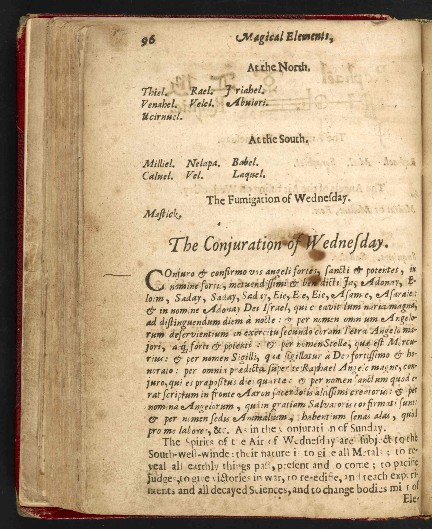 96 Magical Elements,
At the North.
Thiel. Rael. Jriahel.
Venahel. Velel. Abuiori.
Ucirnuel.
At the South.
Milliel. Nelapa. Babel.
Calnel. Vel. Laquel.
The Fumigation of Wednesday.
Mastick,
The Conjuration of Wednesday.
COnjuro & confirmo vos angeli fortes, sancti & potentes, in
nomine fortis, metuendissimi & benedicti Ja, Adonay, E-
loim, Saday, Saday, Saday, Eie, Eie, Eie, Asamie, Asaraie:
& in nomine Adonay Dei Israel, qui creavit luminaria magna,
ad distinguendum diem à nocte: & per nomen omnium Angelo-
rum deservientium in exercitu secundo coram Tetra Angelo ma-
jori, atq; forti & potenti: & per nomen Stellæ, quæ est Mercu-
rius: & per nomen Sigilli, quæ sigillatur à Deo fortissimo & ho-
noraio: per omnia prædicta super te Raphael Angele magne, con-
juro, qui es præpositus diei quartæ: & per nomen sanctum quod e-
rat scriptum in fronte Aaron sacerdotis altissimi creatoris: & per
nomina Angelorum, qui in gratiam Salvatoris confirmati sunt:
& per nomen sedis Animalium, habentium senas alas, quòd
pro me labores, &c. As in the Conjuration of Sunday.
The Spirits of the Air of Wednesday are subject to the
South-west-winde: their nature is to give all Metals; to re-
veal all earthly things past, present and to come; to pacifie
judges, to give victories in war, to re-edifie, and teach experi-
ments and all decayed Sciences, and to change bodies mixt of
Ele-